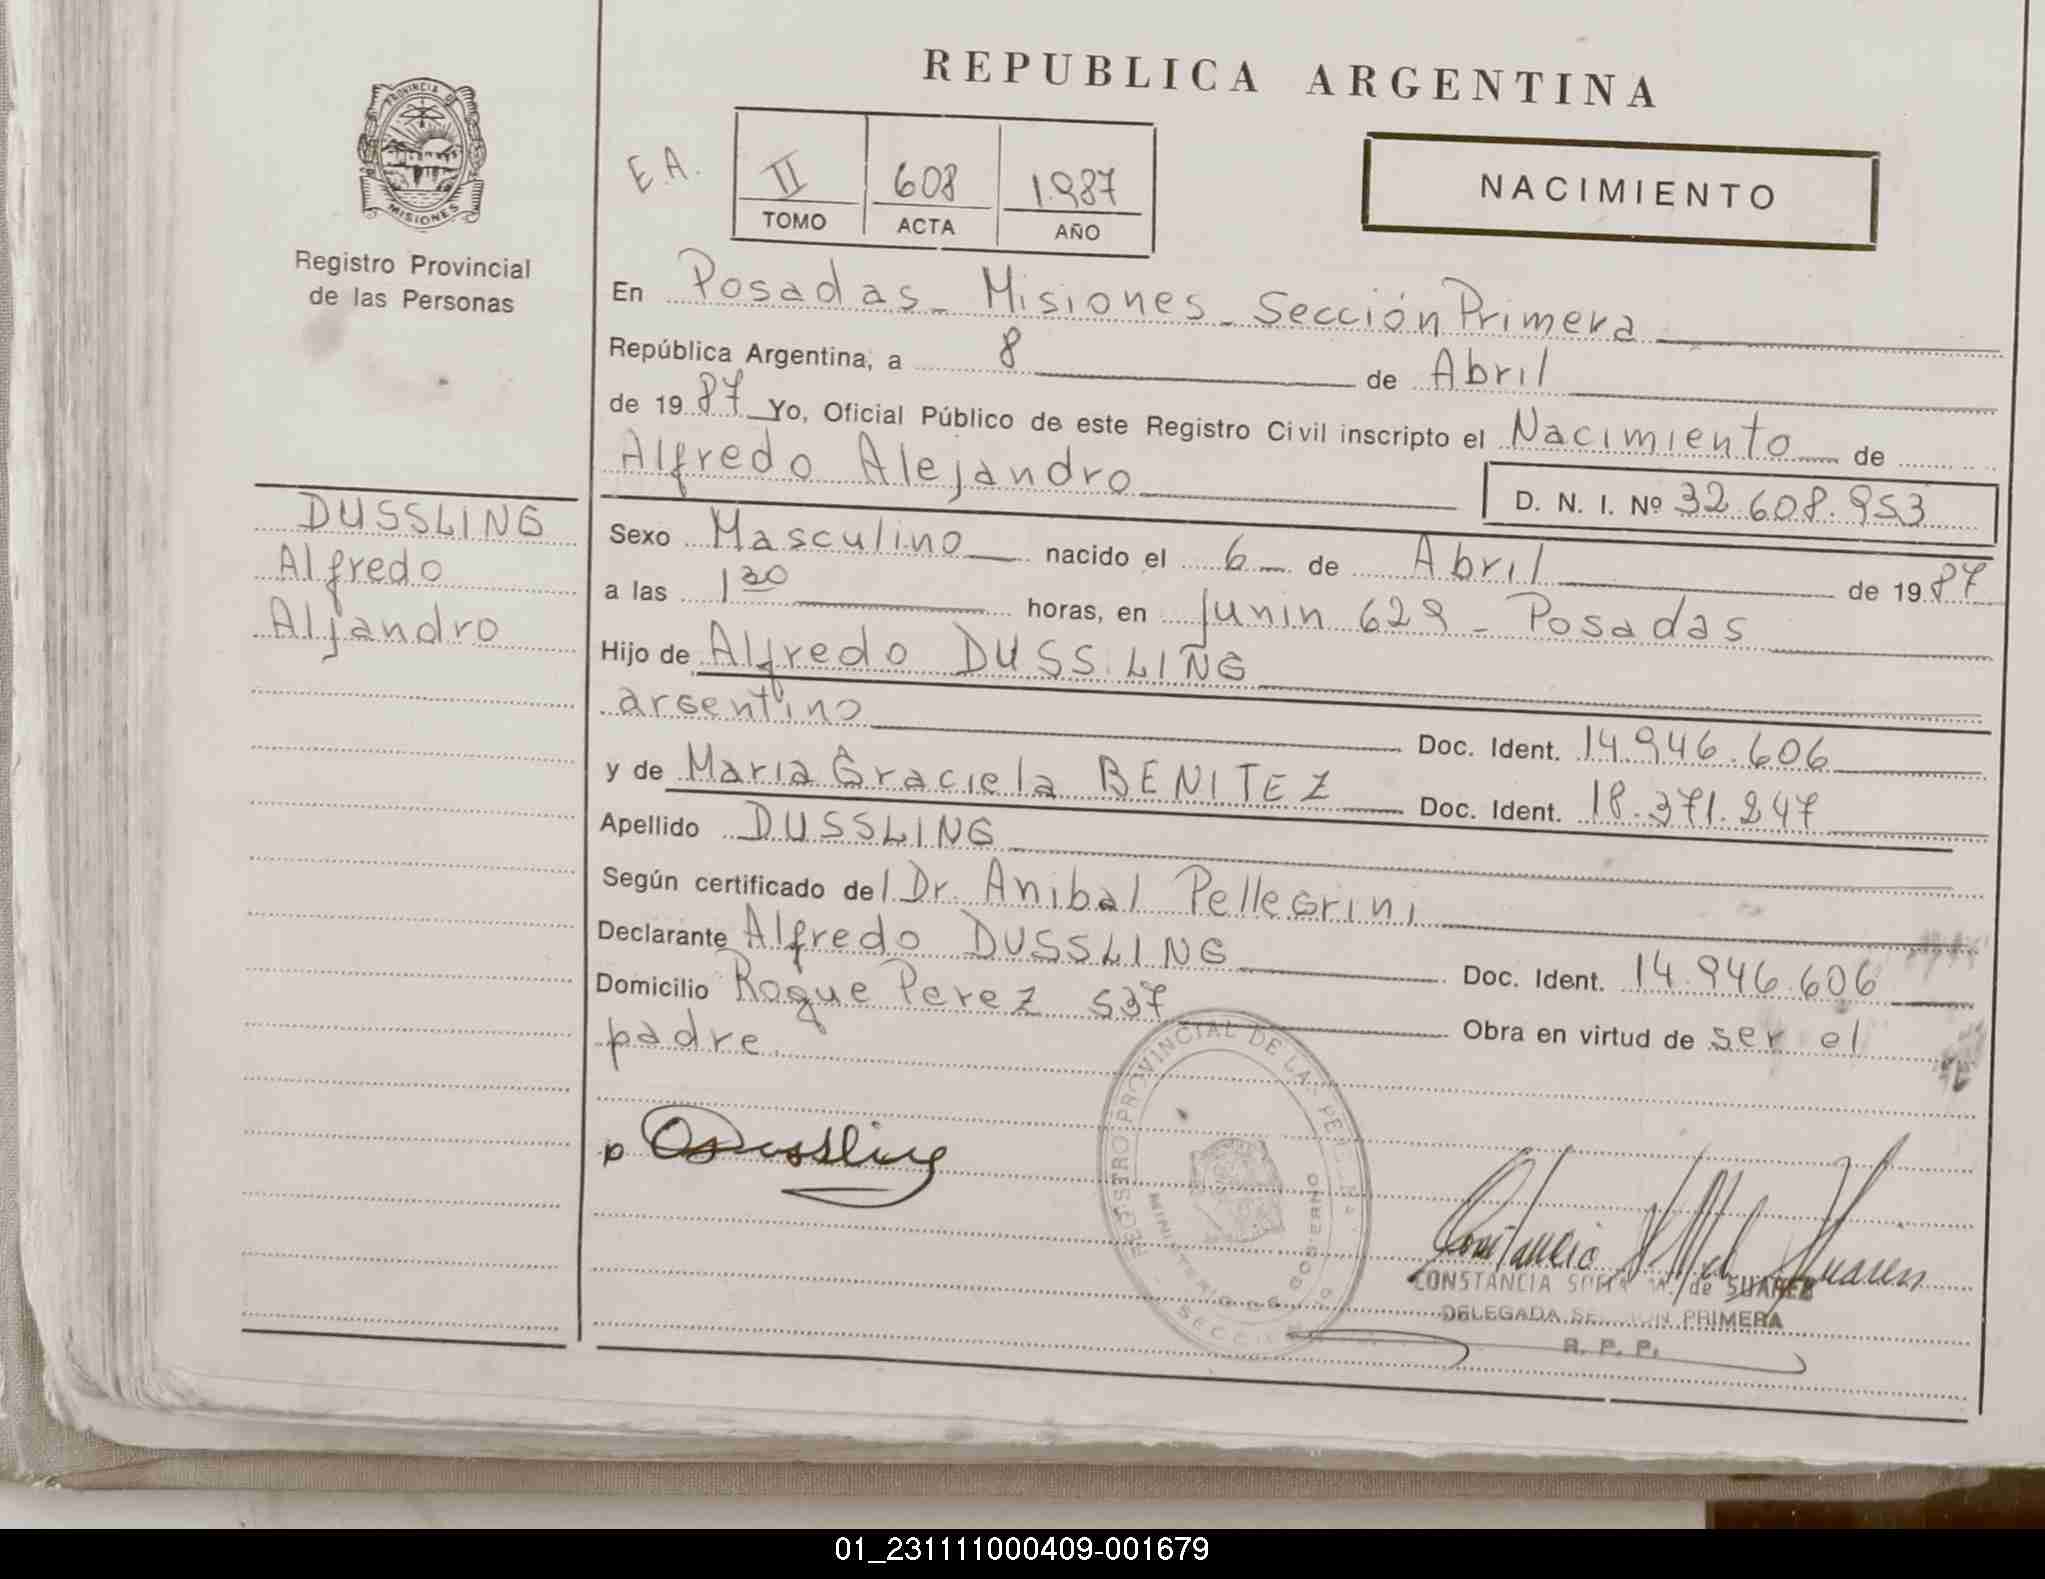 REPUBLICA ARGENTINA
PROVINCIA DE
MISIONES
Registro Provincial
de las Personas
E.A.
II 608 1.987
TOMO ACTA AÑO
NACIMIENTO
DUSSLING
Alfredo
Aljandro
En Posadas - Misiones - Sección Primera
República Argentina, a 8 de Abril
de 1987 Yo, Oficial Público de este Registro Civil inscripto el Nacimiento de
Alfredo Alejandro
D. N. I. Nº 32.608.953
Sexo Masculino nacido el 6 de Abril de 1987
a las 1 30 horas, en Junin 629 - Posadas
Hijo de Alfredo DUSSLING
argentino Doc. Ident. 14.946.606
y de Maria Graciela BENITEZ Doc. Ident. 18.371.247
Apellido DUSSLING
Según certificado del Dr. Anibal Pellegrini
Declarante Alfredo DUSSLING Doc. Ident. 14.946.606
Domicilio Roque Perez 537 Obra en virtud de ser el
padre
REGISTRO PROVINCIAL DE LAS
MINISTERIO DE GOBIERNO
SECCION
Dussling
CONSTANCIA de SUAREZ
DELEGADA PRIMERA
R. P. P.
01_231111000409-001679